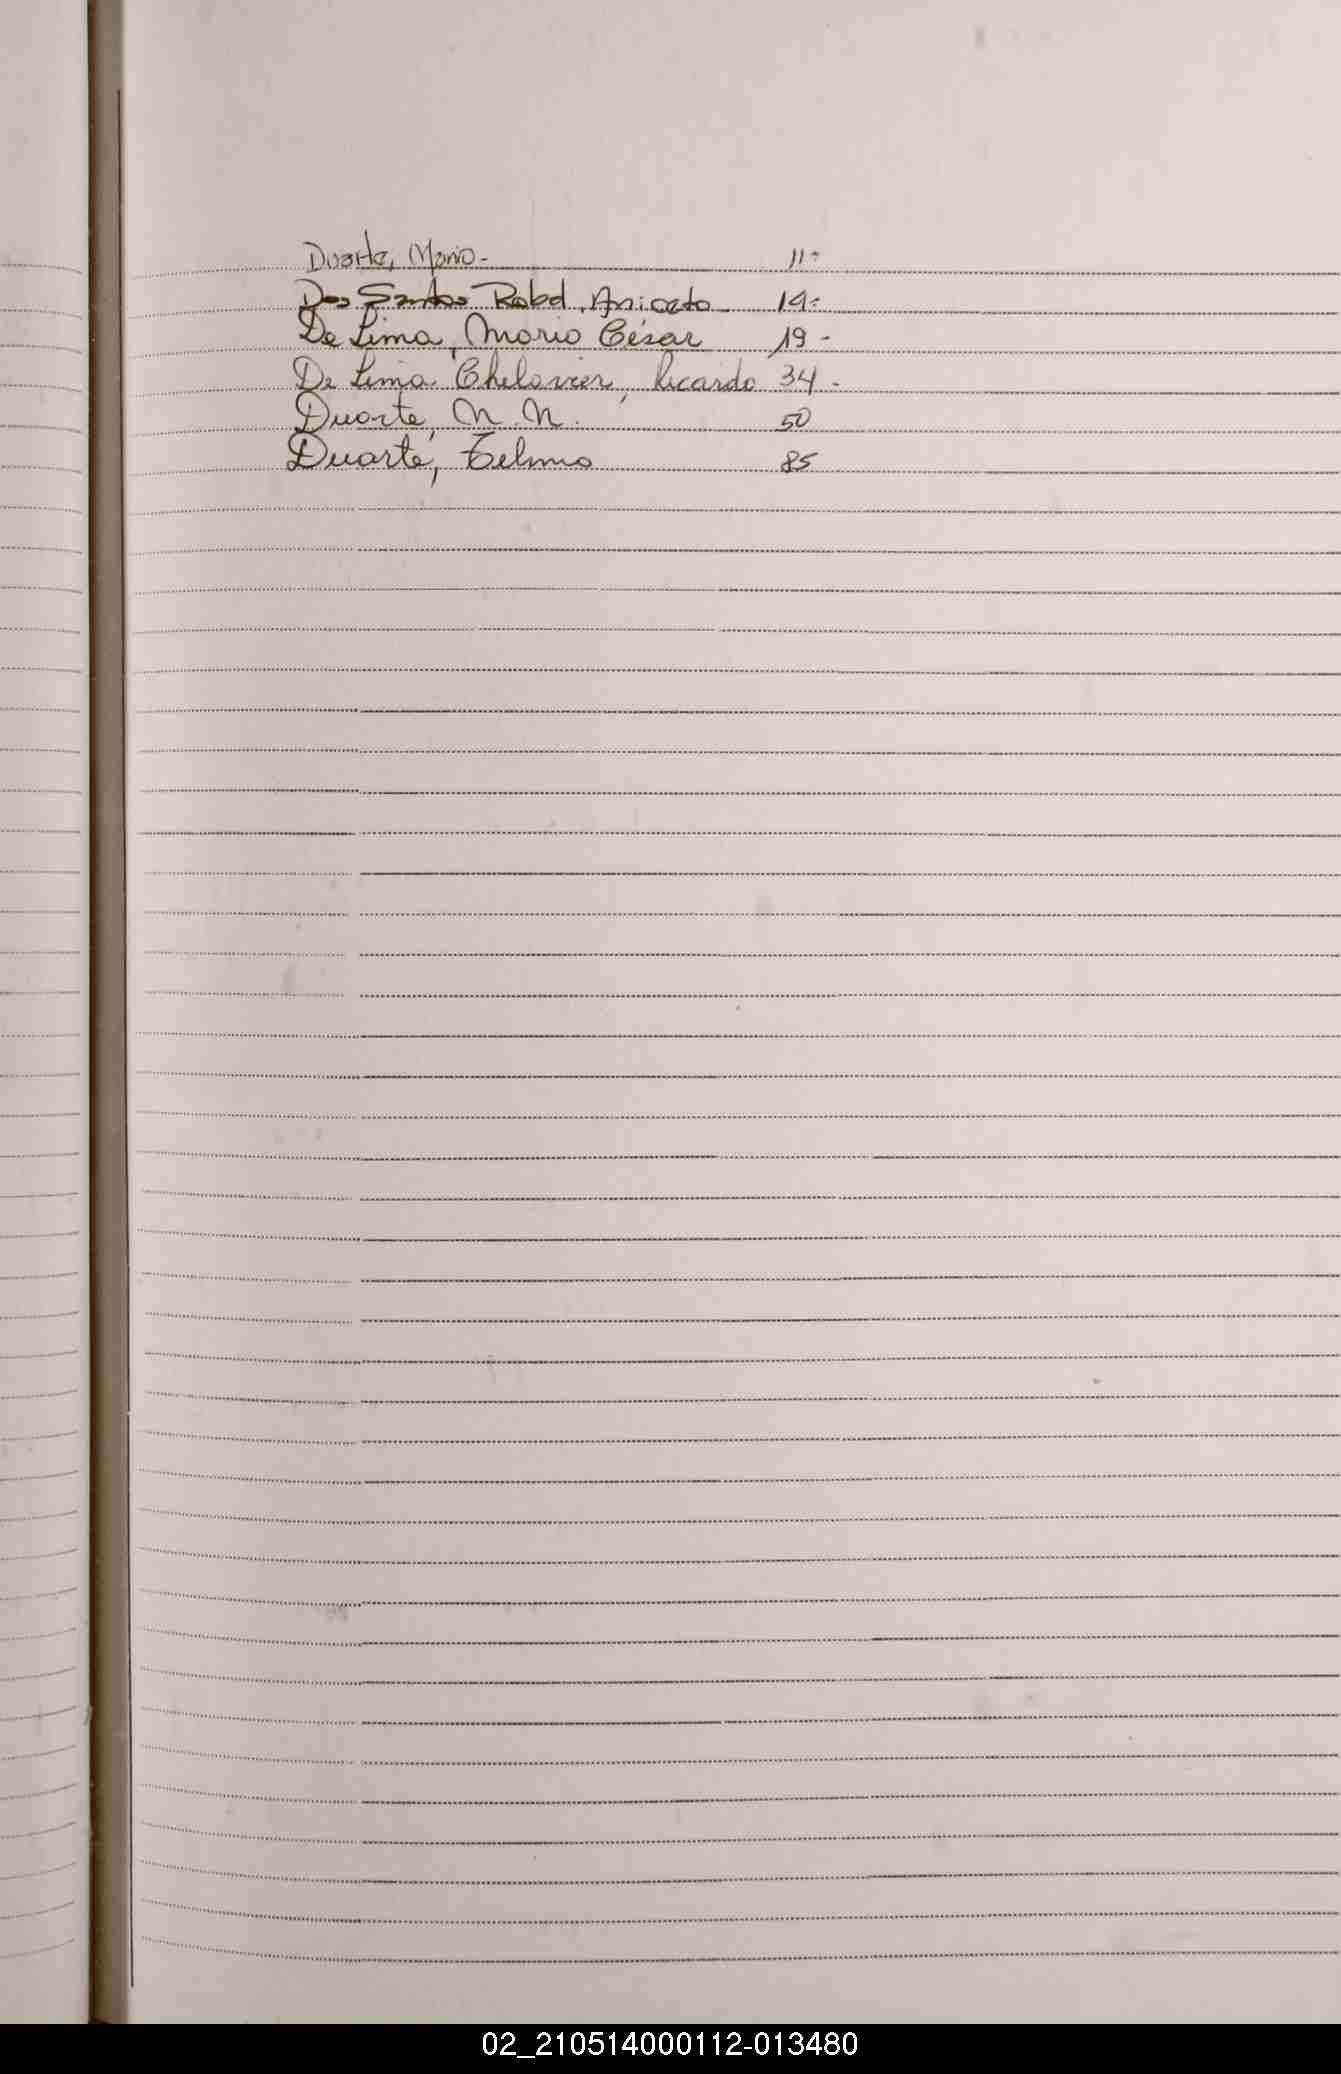 Duarte, Mario- 11-
Dos Santos Robd, Aniceto 14-
De Lima, Mario César 19-
De Lima Chelavier, Ricardo 34-
Duarte, N.N. 50
Duarte, Telmo 85
02_210514000112-013480